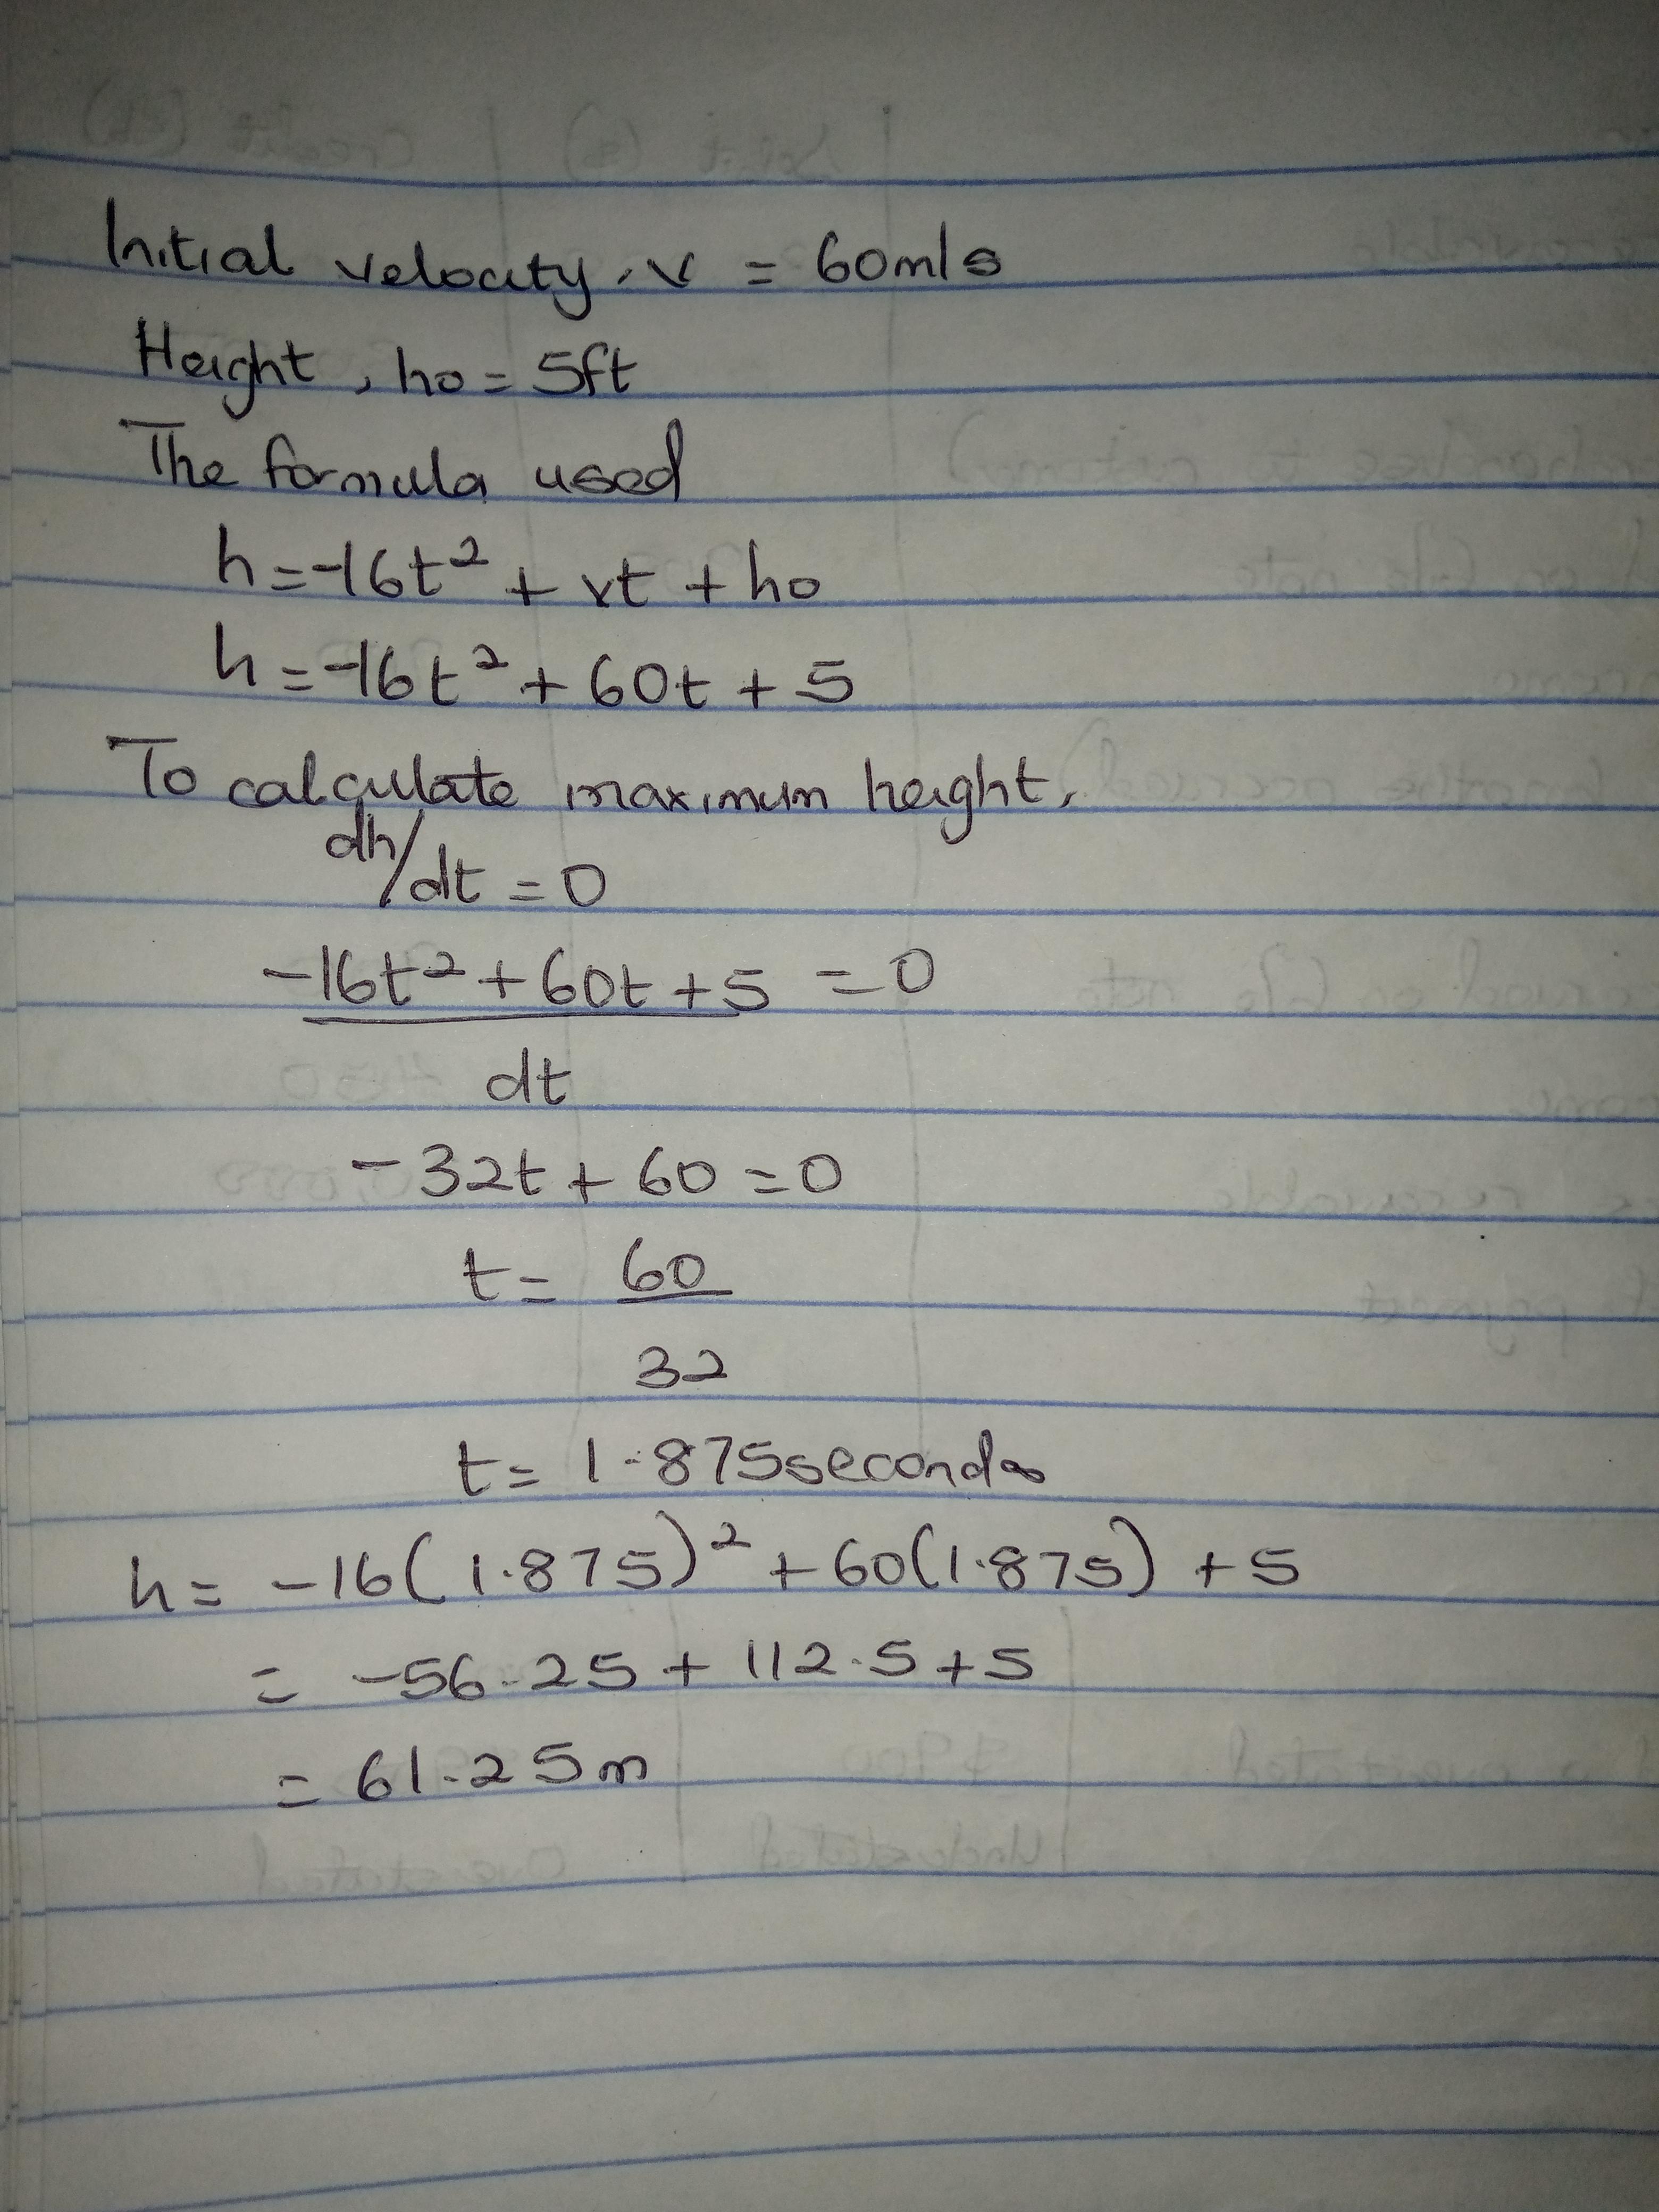 Initial velocity, v = 60m/s
Height, ho = 5ft
The formula used
h = -16t² + vt + ho
h = -16t² + 60t + 5
To calculate maximum height,
dh/dt = 0
-16t² + 60t + 5 = 0
dt
- 32t + 60 = 0
t = 60
32
t = 1.875seconds
h = -16(1.875)² + 60(1.875) + 5
= -56.25 + 112.5 + 5
= 61.25m